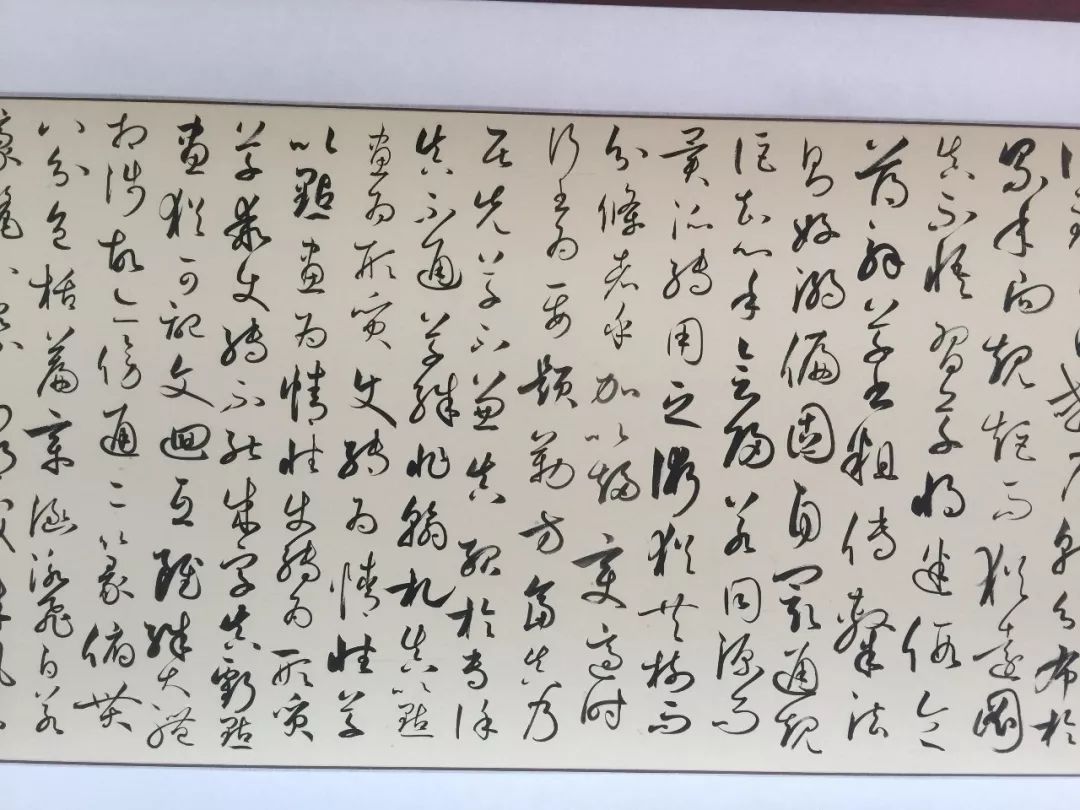 分布於
累年向規矩而猶遠圖
真不悟習草將迷假令
薄解草書粗傳隸法
則好溺偏固自閡通規
詎知心手會歸若同源而
異派轉用之術猶共樹而
分條者乎加以趨變適時
行書為要題勒方畐真乃
居先草不兼真殆於專謹
真不通草殊非翰札真以點
畫為形質使轉為情性草
以點畫為情性使轉為形質
草乖使轉不能成字真虧點
畫猶可記文迴互雖殊大體
相涉故亦傍通二篆俯貫
八分包括篇章涵泳飛白若
毫釐不察則胡越殊風